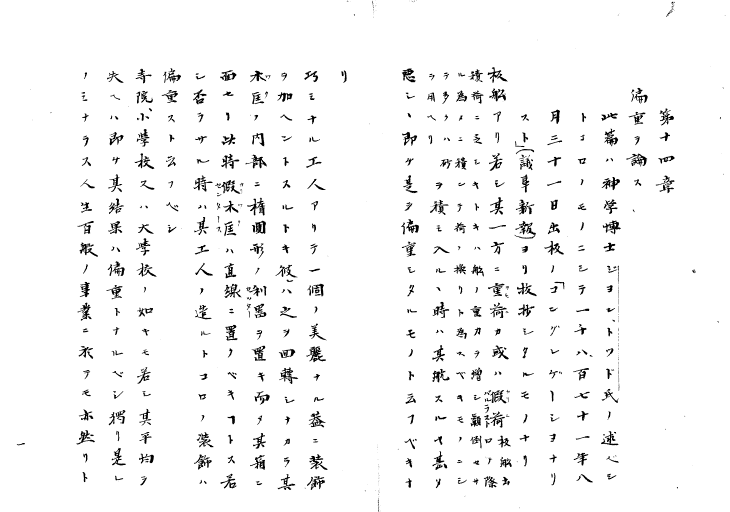 第十四章
偏重ヲ論ス
此篇ハ神学博士ジヨン、トツド氏ノ述ベシ
トコロノモノニシテ一千八百七十一年八
月三十一日出板ノ「コングレゲーシヨナリ
スト」(議事新報)ヨリ抜抄シタルモノナリ
板船アリ若シ其一方ニ重荷カ或ハ假荷
バルラスト
板船出口ノ際
積荷ニ乏シキトキハ船ノ重カヲ増シ顛倒セサ
ル為メニ積ンデ荷ノ換リト為スベキモノニシ
テ多クハ砂ヲ用ヘリ
ヲ積ミ入ルヽ時ハ其航スルヤ甚タ
悪シヽ即ケ是ヲ偏重シタルモノト云フベキナ
リ
巧ミナル工人アリテ一個ノ美麗ナル蓋ニ装飾
ヲ加ヘントスルトキ彼ハ之ヲ回轉シナカラ其
木匡ノ内部ニ楕圓形ノ利器ヲ置キ而タ其箱ニ
面セリ此時假木匡ハ直線ニ置クベキコトス若
シ否ラサル時ハ其工人ノ造ルトコロノ装飾ハ
偏重ストヱフベシ
寺院、小學校又ハ大學校ノ如キモ若シ其平均ヲ
失ヘハ即ケ其結果ハ偏重トナルベシ獨リ是レ
ノミナラス人生百般ノ事業ニ於テモ亦然リト